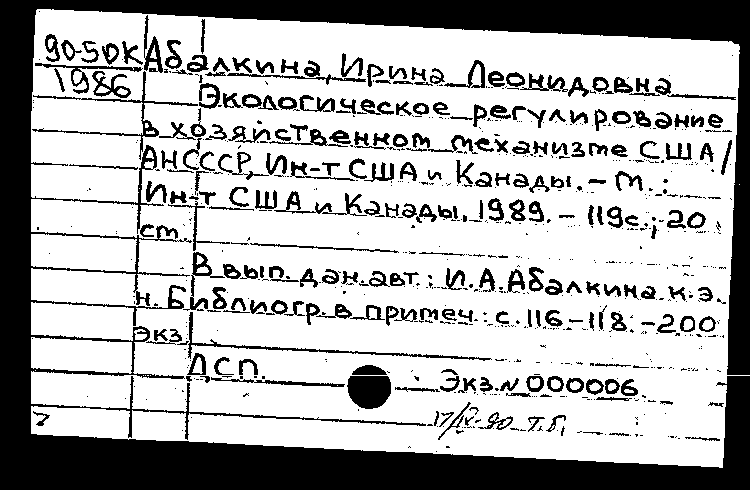 90-50К Абалкина, Ирина Леонидовна
1986 Экологическое регулирование
в хозяйственном механизме США/
АНСССР, Ин-т США и Канады. – М.:
Ин-т США и Канады, 1989. – 119с.; 20
см.
В вып. дан. авт.: И.А.Абалкина к.э.
н. Библиогр. в примеч.: с. 116–118. –200
экз.
ДСП. Экз.№000006
17/IV-90 Т.Б.